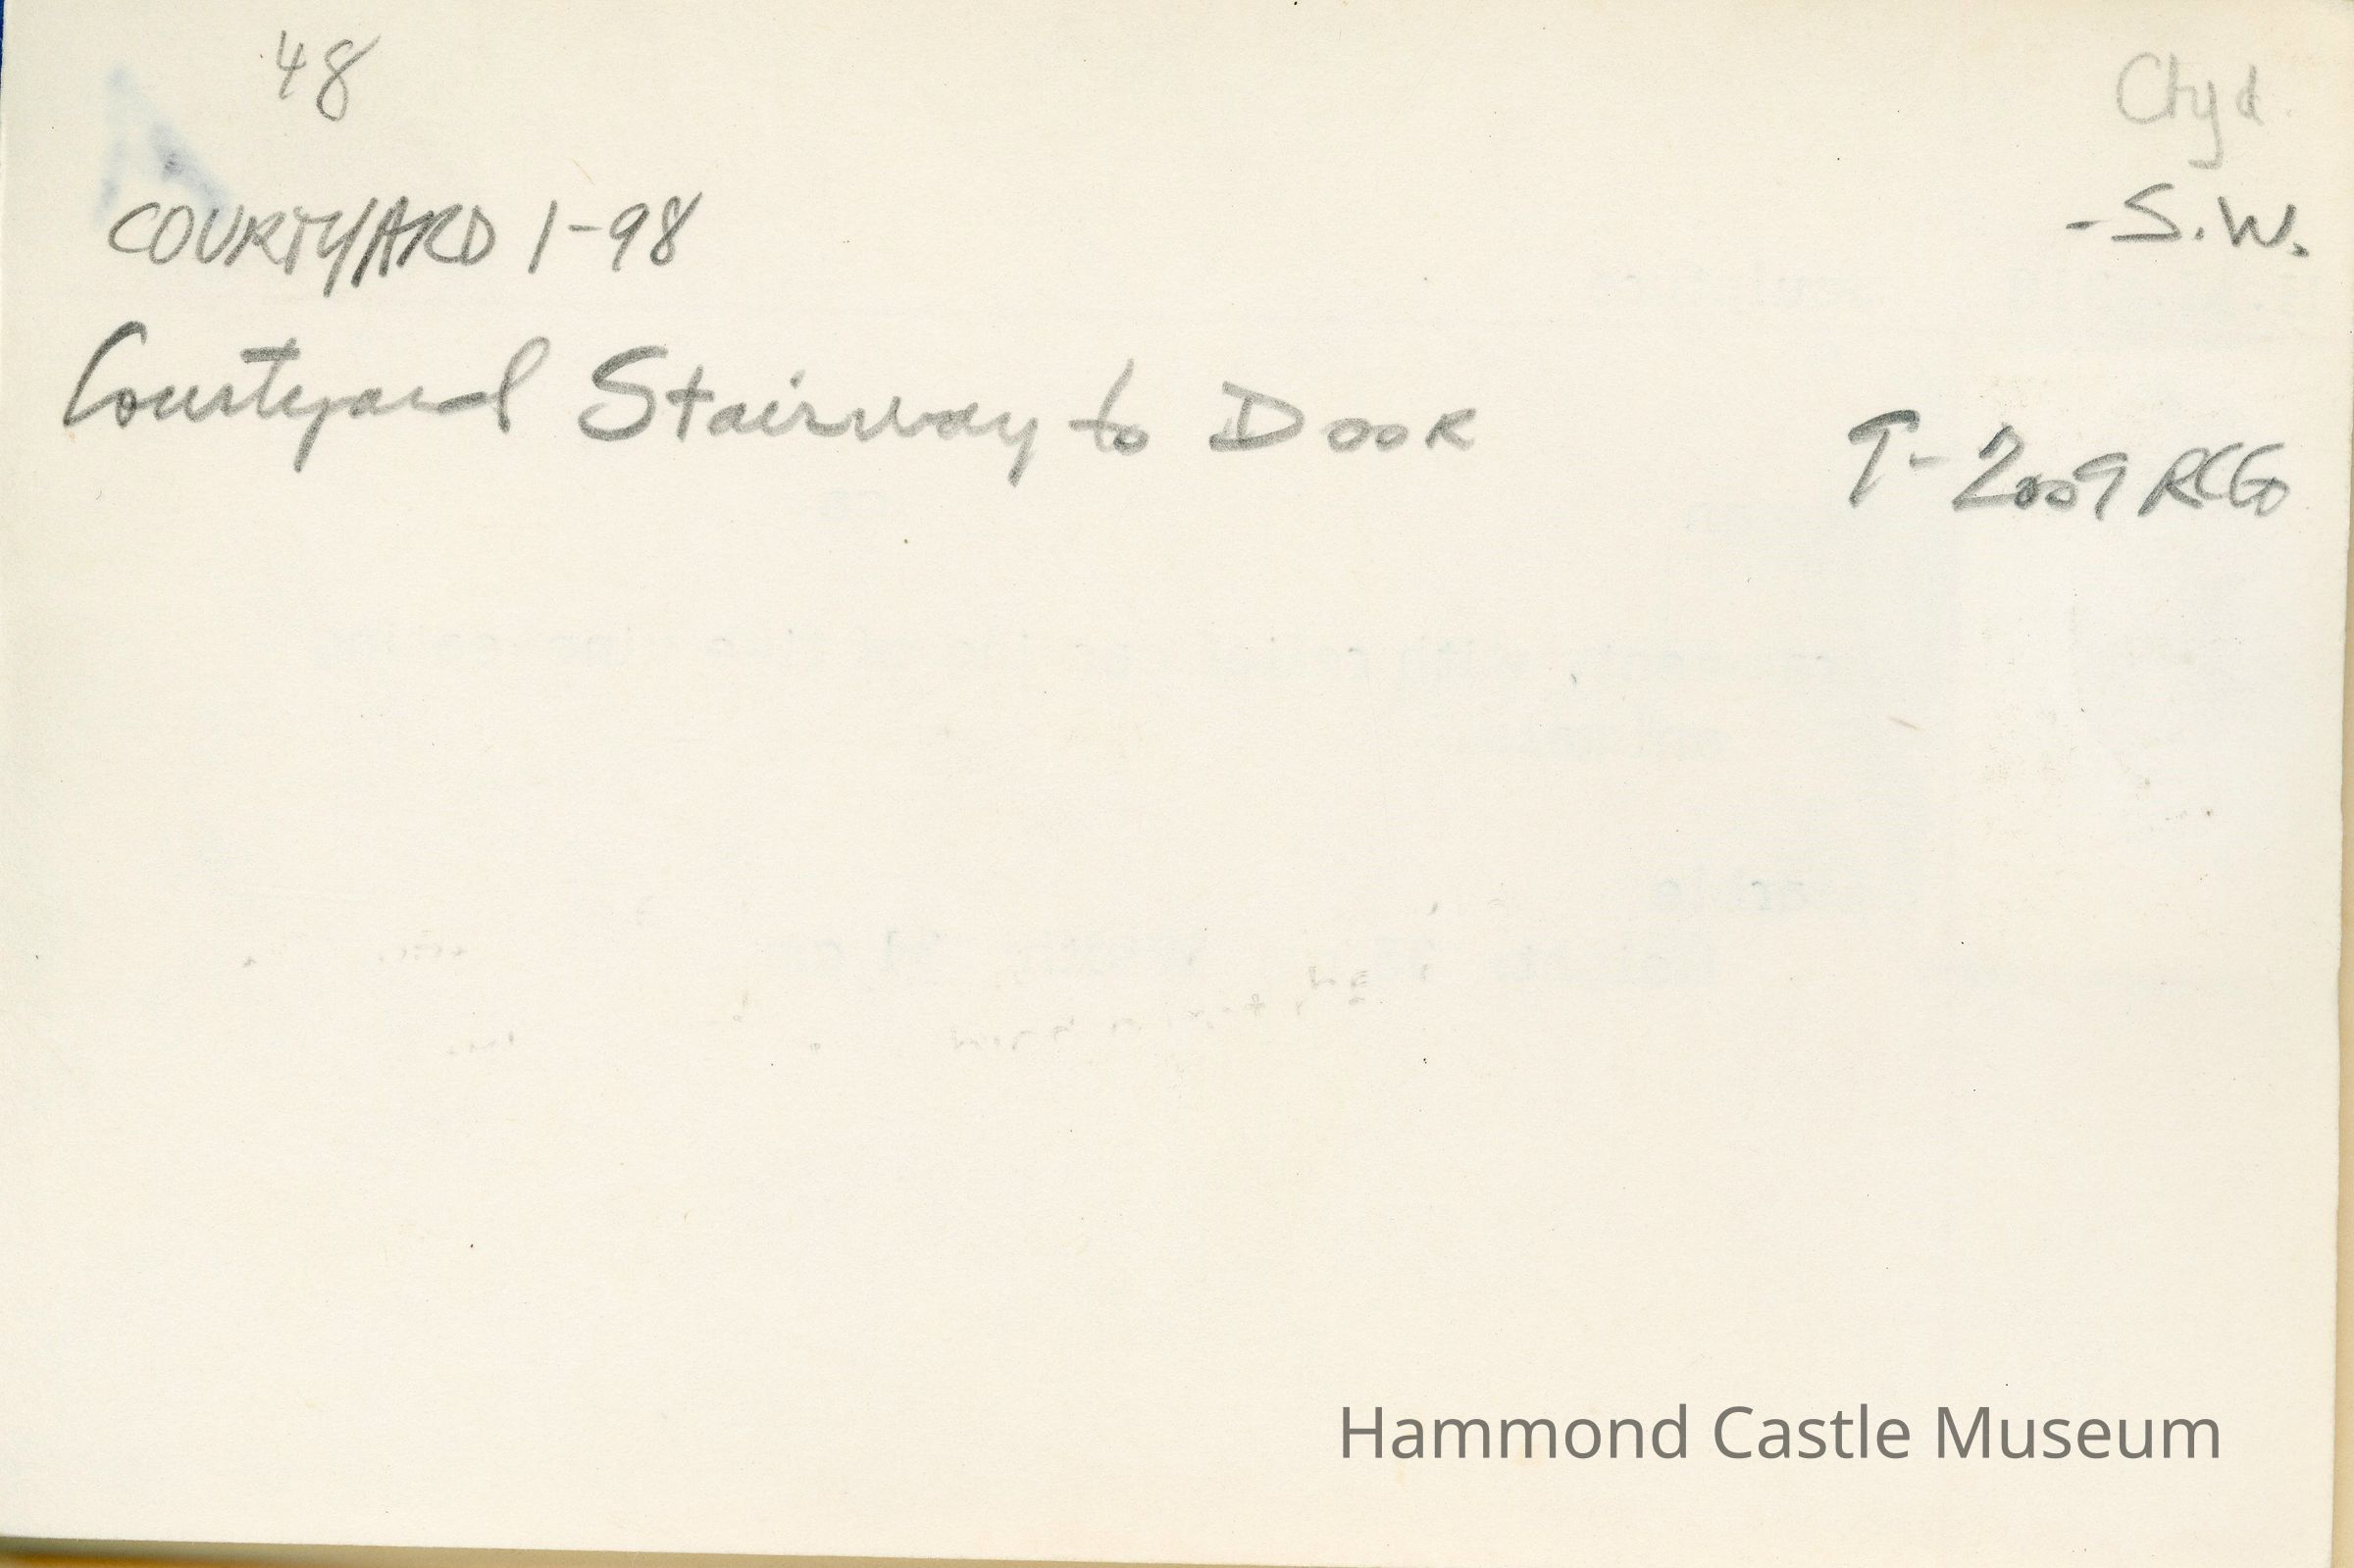 48
Ctyd.
COURTYARD 1-98
-S.W.
Courtyard Stairway to Door
T-2009 RCG
Hammond Castle Museum